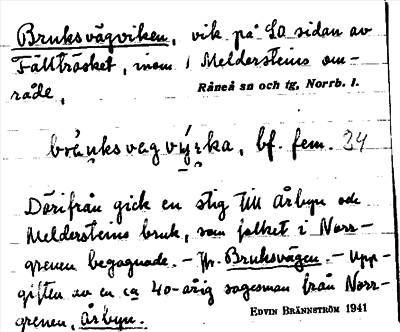 Bruksvägviken, vik på SO sidan av
Fällträsket, inom Meldersteins om-
råde,
Råneå sn och tg, Norrb. l.
bf. fem. 34
Därifrån gick en stig till Årbyn och
Meldersteins bruk, som folket i Norr-
grenen begagnade. – Jfr. Bruksvägen. – Upp-
giften av en ca 40-årig sagesman från Norr-
grenen, Årbyn.
EDVIN BRÄNNSTRÖM 1941